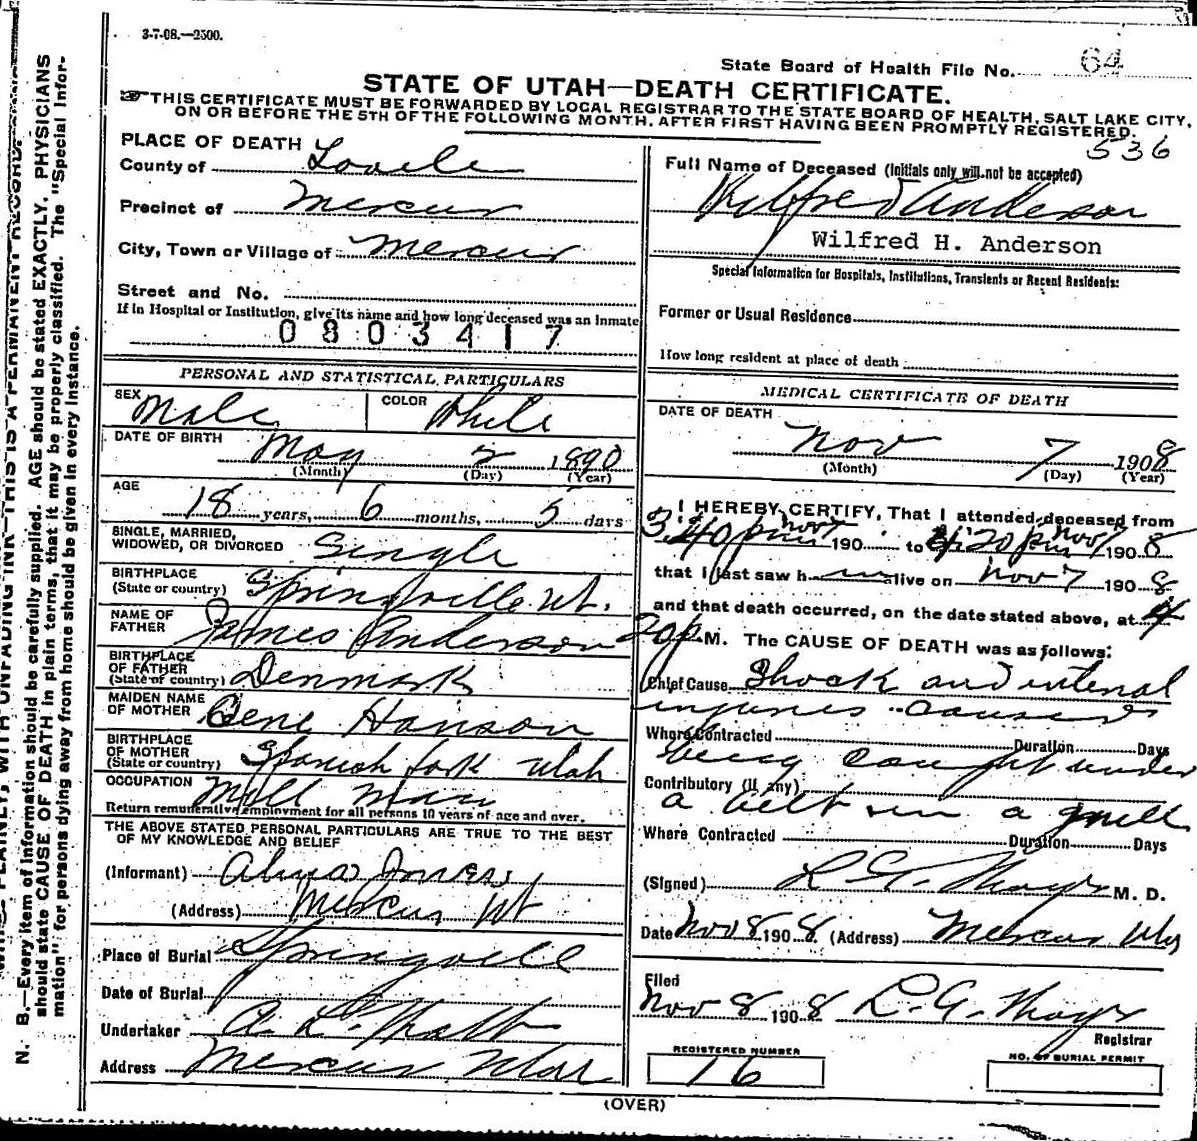 3-7-08.—2500.
State Board of Health File No. 64
STATE OF UTAH—DEATH CERTIFICATE.
THIS CERTIFICATE MUST BE FORWARDED BY LOCAL REGISTRAR TO THE STATE BOARD OF HEALTH, SALT LAKE CITY,
ON OR BEFORE THE 5TH OF THE FOLLOWING MONTH, AFTER FIRST HAVING BEEN PROMPTLY REGISTERED.
536
PLACE OF DEATH
County of Tooele
Precinct of Mercur
City, Town or Village of Mercur
Street and No.
If in Hospital or Institution, give its name and how long deceased was an Inmate
0803417
PERSONAL AND STATISTICAL PARTICULARS
SEX Male COLOR White
DATE OF BIRTH
May 2 1890
(Month) (Day) (Year)
AGE
18 years, 6 months, 5 days
SINGLE, MARRIED,
WIDOWED, OR DIVORCED Single
BIRTHPLACE
(State or country) Springville Ut.
NAME OF
FATHER James Anderson
BIRTHPLACE
OF FATHER
(State or country) Denmark
MAIDEN NAME
OF MOTHER Gene Hanson
BIRTHPLACE
OF MOTHER
(State or country) Spanish fork Utah
OCCUPATION Mill Man
Return remunerative employment for all persons 10 years of age and over.
THE ABOVE STATED PERSONAL PARTICULARS ARE TRUE TO THE BEST
OF MY KNOWLEDGE AND BELIEF
(Informant)
(Address) Mercur Ut
Place of Burial Springville
Date of Burial
Undertaker A. L.
Address Mercur Utah
Full Name of Deceased (Initials only will not be accepted)
Wilfred Anderson
Wilfred H. Anderson
Special Information for Hospitals, Institutions, Transients or Recent Residents:
Former or Usual Residence
How long resident at place of death
MEDICAL CERTIFICATE OF DEATH
DATE OF DEATH
Nov 7 1908
(Month) (Day) (Year)
I HEREBY CERTIFY, That I attended deceased from
3:40 pm Nov 7 190 to 4:20 pm Nov 7 1908
that I last saw him alive on Nov 7 1908
and that death occurred, on the date stated above, at 4
20 p M. The CAUSE OF DEATH was as follows:
Chief Cause Shock and internal
injuries caused
Where Contracted Duration Days
being caught under
Contributory (if any)
a belt in a mill
Where Contracted Duration Days
(Signed) L. G. M. D.
Date Nov 8 1908 (Address) Mercur Utah
Filed
Nov 8 1908 L. G.
Registrar
REGISTERED NUMBER
16
NO. OF BURIAL PERMIT
(OVER)
N. B.—Every item of information should be carefully supplied. AGE should be stated EXACTLY. PHYSICIANS
should state CAUSE OF DEATH in plain terms, that it may be properly classified. The "Special Infor-
mation" for persons dying away from home should be given in every instance.
WITH UNFADING INK—THIS IS A PERMANENT RECORD